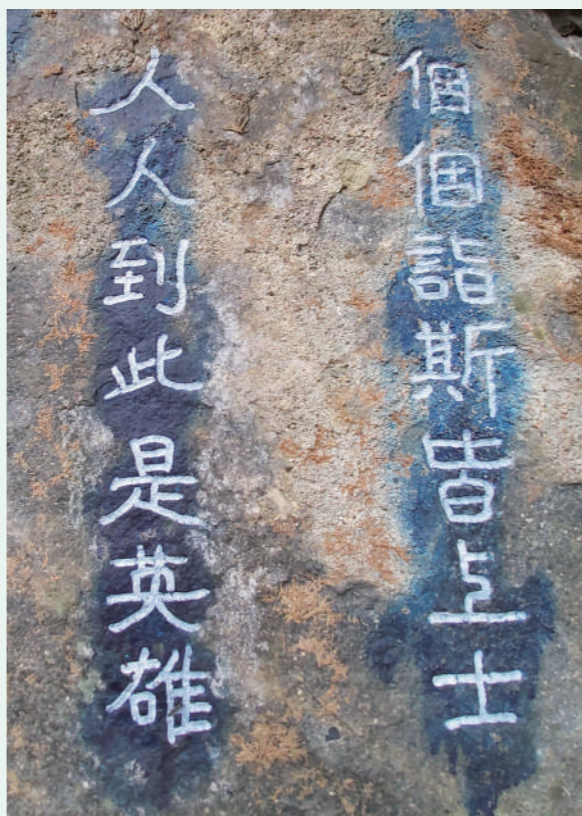 個個詣斯皆上士
人人到此是英雄